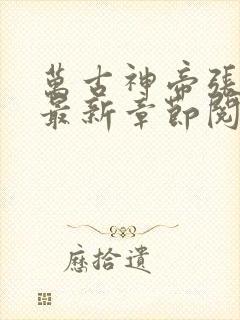 萬古神帝張
最新章節閱
歷拾遺